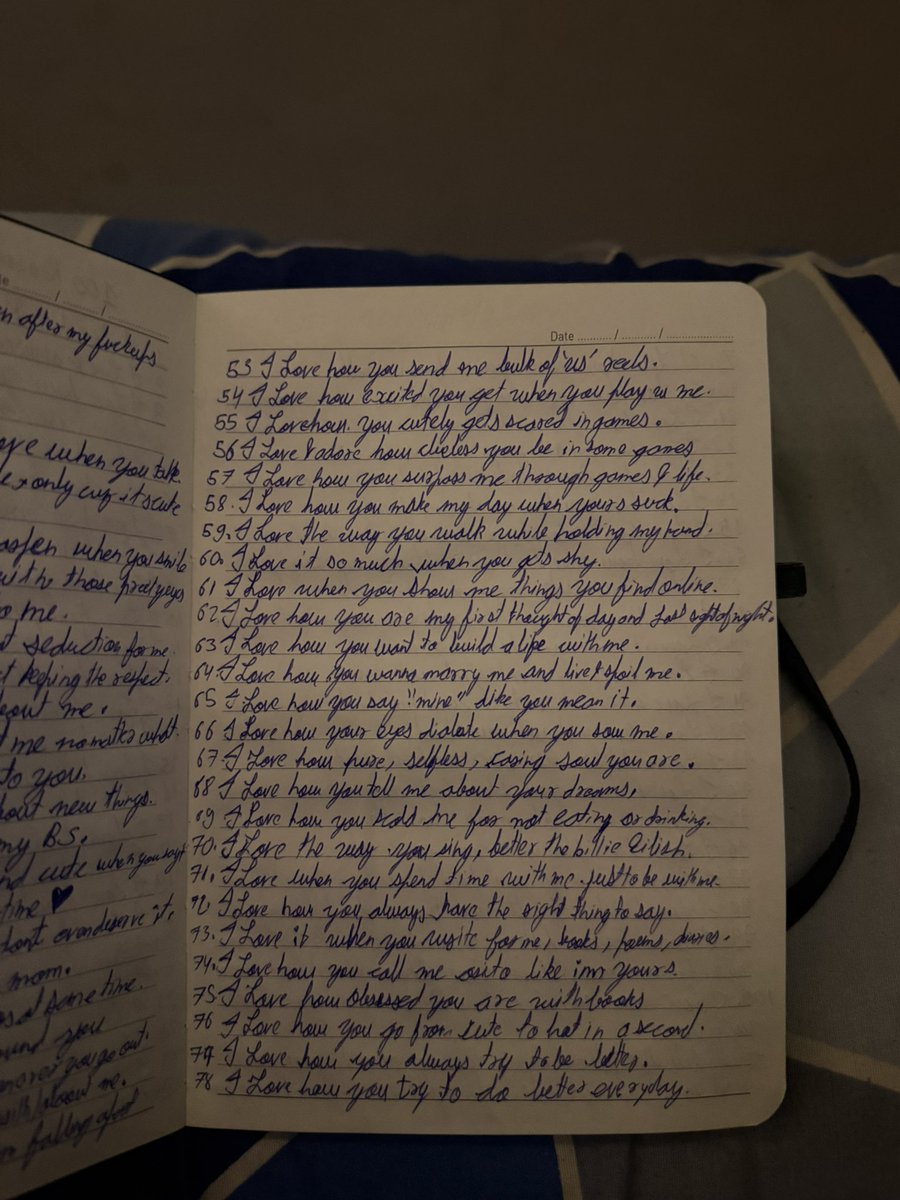 n after my fuckups
ove when you talk
only
when you smile
with those pretty eyes
o me.
seduction for me.
keeping the respect.
about me.
me no matter what.
to you.
about new things.
my BS.
nd cute when you say
time ♥
dont even deserve it,
mom.
at same time.
you
you go out.
me.
falling
Date ........../........../....................
53 I Love how you send me bulk of 'us' reels.
54 I Love how excited you get when you play w me.
55 I Love how you cutely gets scared in games.
56 I Love & adore how clueless you be in some games
57 I Love how you surpass me through games & life.
58. I Love how you make my day when yours suck.
59. I Love the way you walk while holding my hand.
60. I Love it so much when you gets shy.
61 I Love when you show me things you find online.
62 I Love how you are my first thought of day and last of night.
63 I Love how you want to build a life with me.
64. I Love how you wanna marry me and live & spoil me.
65 I Love how you say "mine" like you mean it.
66 I Love how your eyes dialate when you saw me.
67 I Love how pure, selfless, caring soul you are.
68 I Love how you tell me about your dreams.
69 I Love how you scold me for not eating or drinking.
70. I Love the way you sing, better the billie Eilish.
71. I Love when you spend time with me just to be with me.
72 I Love how you always have the right thing to say.
73. I Love it when you write for me, books, poems, diaries.
74. I Love how you call me like imm yours.
75 I Love how obsessed you are with books
76 I Love how you go from cute to hot in a second.
77 I Love how you always try to be better.
78 I Love how you try to do better everyday.